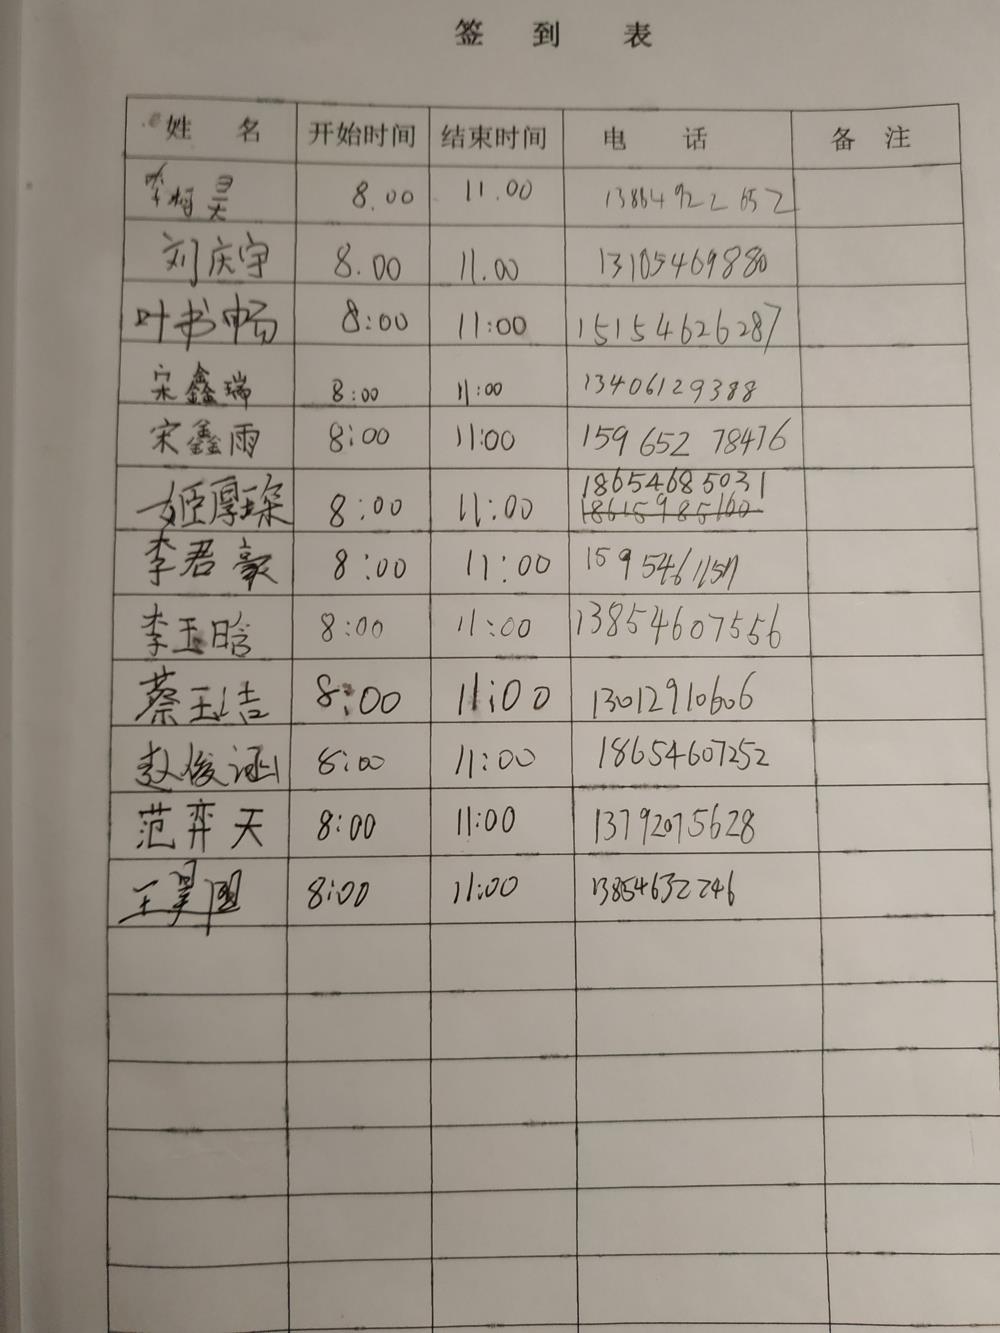 签 到 表
姓 名 开始时间 结束时间 电 话 备 注
李 昊 8.00 11.00 13864922652
刘庆宇 8.00 11.00 13105469880
叶书畅 8:00 11:00 15154626287
宋鑫瑞 8:00 11:00 13406129388
宋鑫雨 8:00 11:00 159 652 78476
姬厚琛 8:00 11:00 18654685031
18615985160
李君豪 8:00 11:00
李玉晗 8:00 11:00 13854607556
蔡玉洁 8:00 11:00 13012910606
赵俊涵 8:00 11:00 18654607252
范弈天 8:00 11:00 13792075628
王昊 8:00 11:00 13854632246